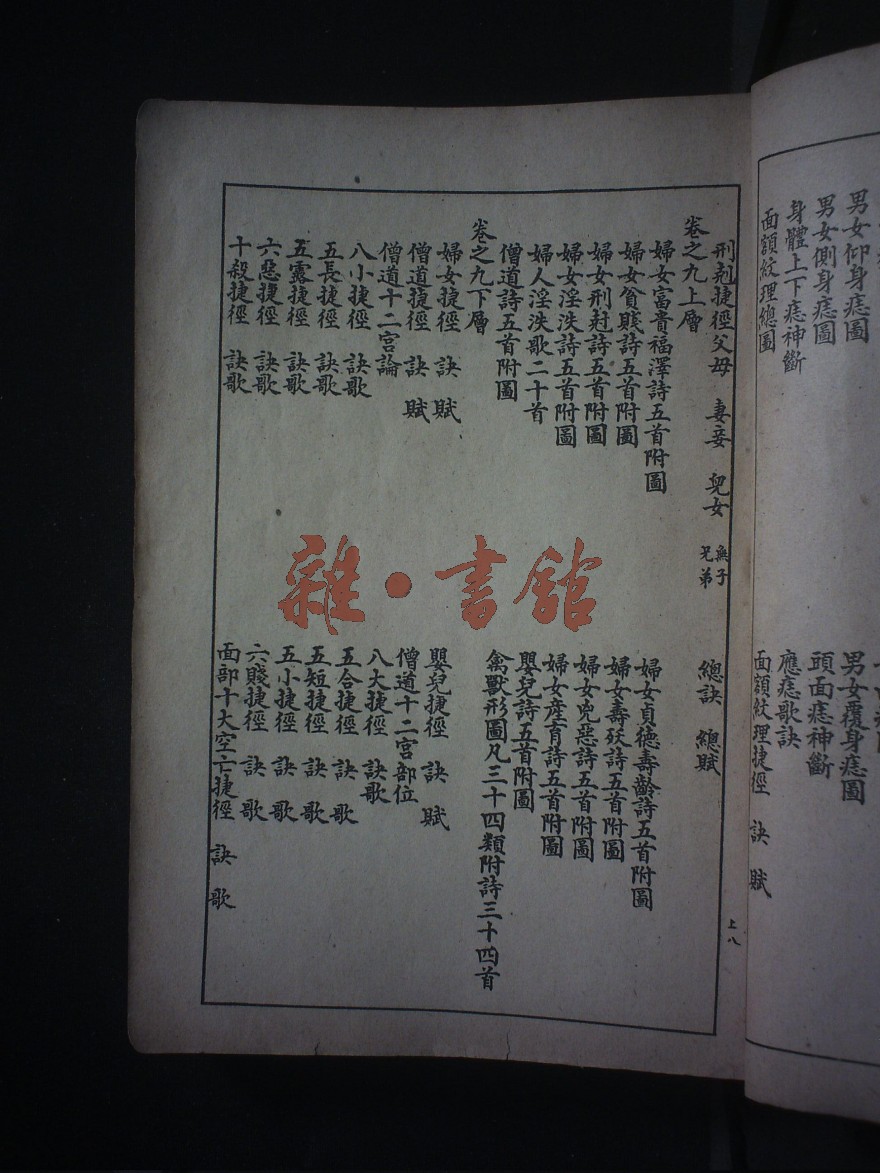 男女仰身痣圖
男女覆身痣圖
男女側身痣圖
頭面痣神斷
身體上下痣神斷
應痣歌訣
面額紋理總圖
面額紋理捷徑 訣 賦
刑剋捷徑父母 妻妾 兒女 無子 兄弟 總訣 總賦
卷之九上層
婦女富貴福澤詩五首附圖
婦女貞德壽齡詩五首附圖
婦女貧賤詩五首附圖
婦女壽殀詩五首附圖
婦女刑尅詩五首附圖
婦女兇惡詩五首附圖
婦女淫泆詩五首附圖
婦女產育詩五首附圖
婦人淫泆歌二十首
嬰兒詩五首附圖
僧道詩五首附圖
禽獸形圖凡三十四類附詩三十四首
卷之九下層
婦女捷徑 訣 賦
嬰兒捷徑 訣 賦
僧道捷徑 訣 賦
僧道十二宮部位
僧道十二宮論
八大捷徑 訣歌
八小捷徑 訣歌
五合捷徑 訣 歌
五長捷徑 訣歌
五短捷徑 訣 歌
五露捷徑 訣歌
五小捷徑 訣 歌
六惡捷徑 訣歌
六賤捷徑 訣 歌
十殺捷徑 訣歌
面部十大空亡捷徑 訣 歌
上八
雜·書館